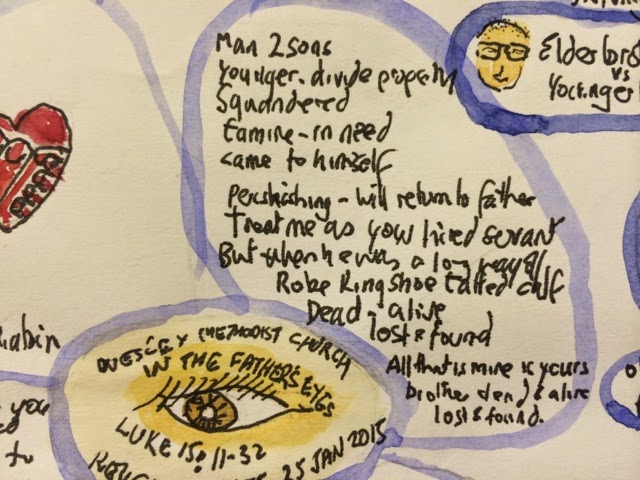 Man 2 sons
Younger. divide property
Squandered
Famine - in need
came to himself
Pershishing - will return to father
Treat me as your hired servant
But when he was a long way off
Robe Ring shoe fatted calf
Dead - alive
lost & found
All that is mine is yours
brother dead & alive
lost & found.
Elder bro
vs
Younger
WESLEY METHODIST CHURCH
IN THE FATHER'S EYES
LUKE 15:11-32
25 JAN 2015
you
to